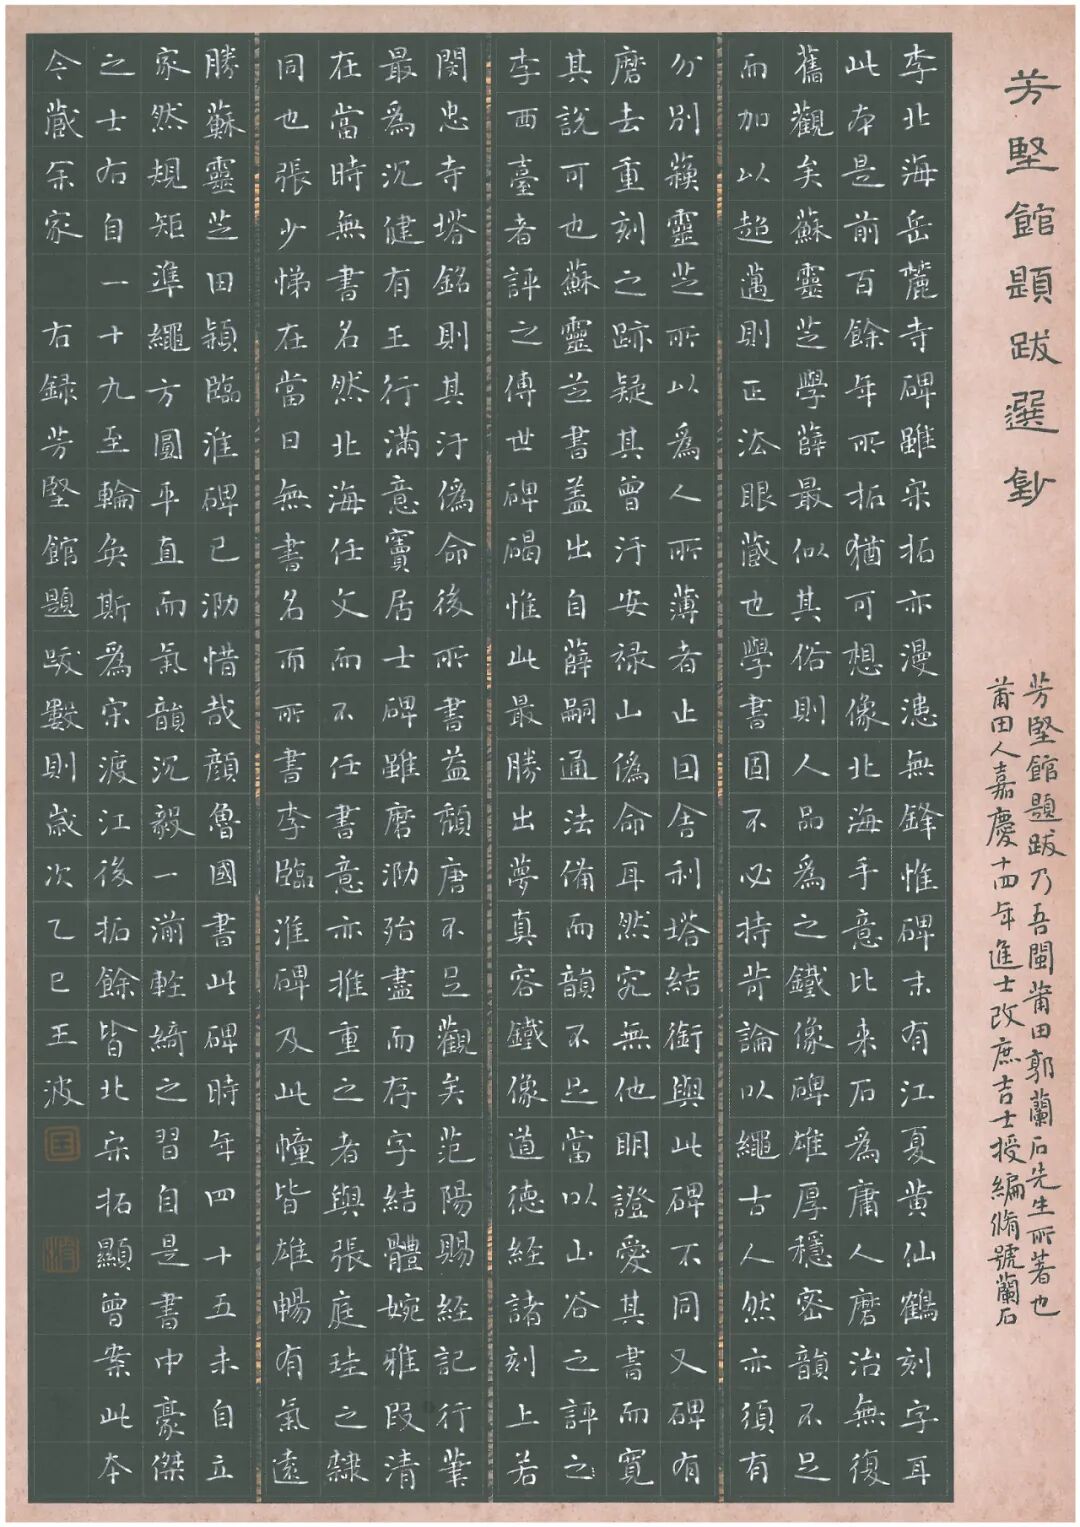 芳堅館題跋選鈔
芳堅館題跋乃吾閩莆田郭蘭石先生所著也
莆田人嘉慶十四年進士改庶吉士授編脩號蘭石
李北海岳麓寺碑雖宋拓亦漫漶無鋒惟碑末有江夏黄仙鶴刻字耳
此本是前百餘年所拓猶可想像北海手意比来石為庸人磨治無復
舊觀矣蘇靈芝學薛最似其俗則人品為之鐵像碑雄厚穩密韻不足
而加以超邁則正法眼蔵也學書固不必持苛論以繩古人然亦須有
分別蘓靈芝所以為人所薄者止因舍利塔結銜與此碑不同又碑有
磨去重刻之跡疑其曾汙安禄山偽命耳然究無他明證愛其書而寛
其說可也蘇靈芝書盖出自薛嗣通法備而韻不足當以山谷之評之
李西臺者評之傳世碑碣惟此最勝出夢真容鐵像道德経諸刻上若
閔忠寺塔銘則其汙偽命後所書益頽唐不足觀矣范陽賜経記行業
最為沉健有王行滿意竇居士碑雖磨泐殆盡而存字結體婉雅段清
在當時無書名然北海任文而不任書意亦推重之者與張庭珪之隸
同也張少悌在當日無書名而所書李臨淮碑及此幢皆雄暢有氣遠
勝蘇靈芝田穎臨淮碑已泐惜哉顔魯國書此碑時年四十五未自立
家然規矩準繩方圓平直而氣韻沉毅一湔輕綺之習自是書中豪傑
之士右自一十九至輪奐斯為宋渡江後拓餘皆北宋拓顯曾案此本
今蔵余家 右録芳堅館題跋數則歲次乙巳王波